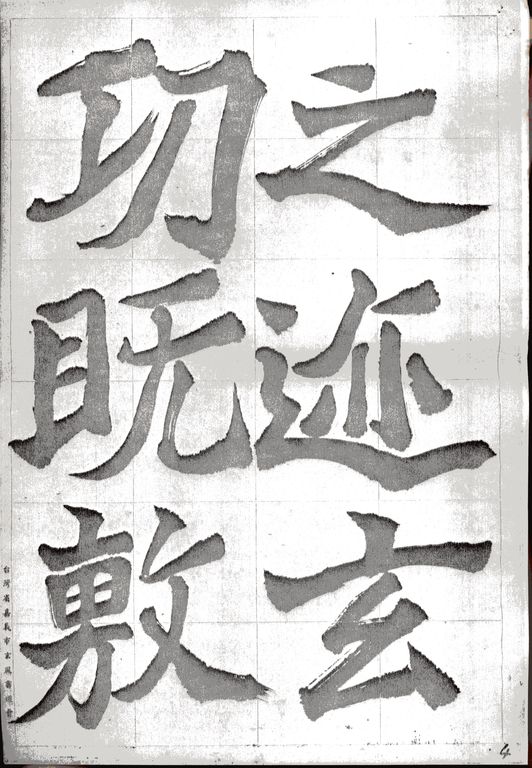 之迹玄
功既敷
台灣省嘉義市玄風書道會
4